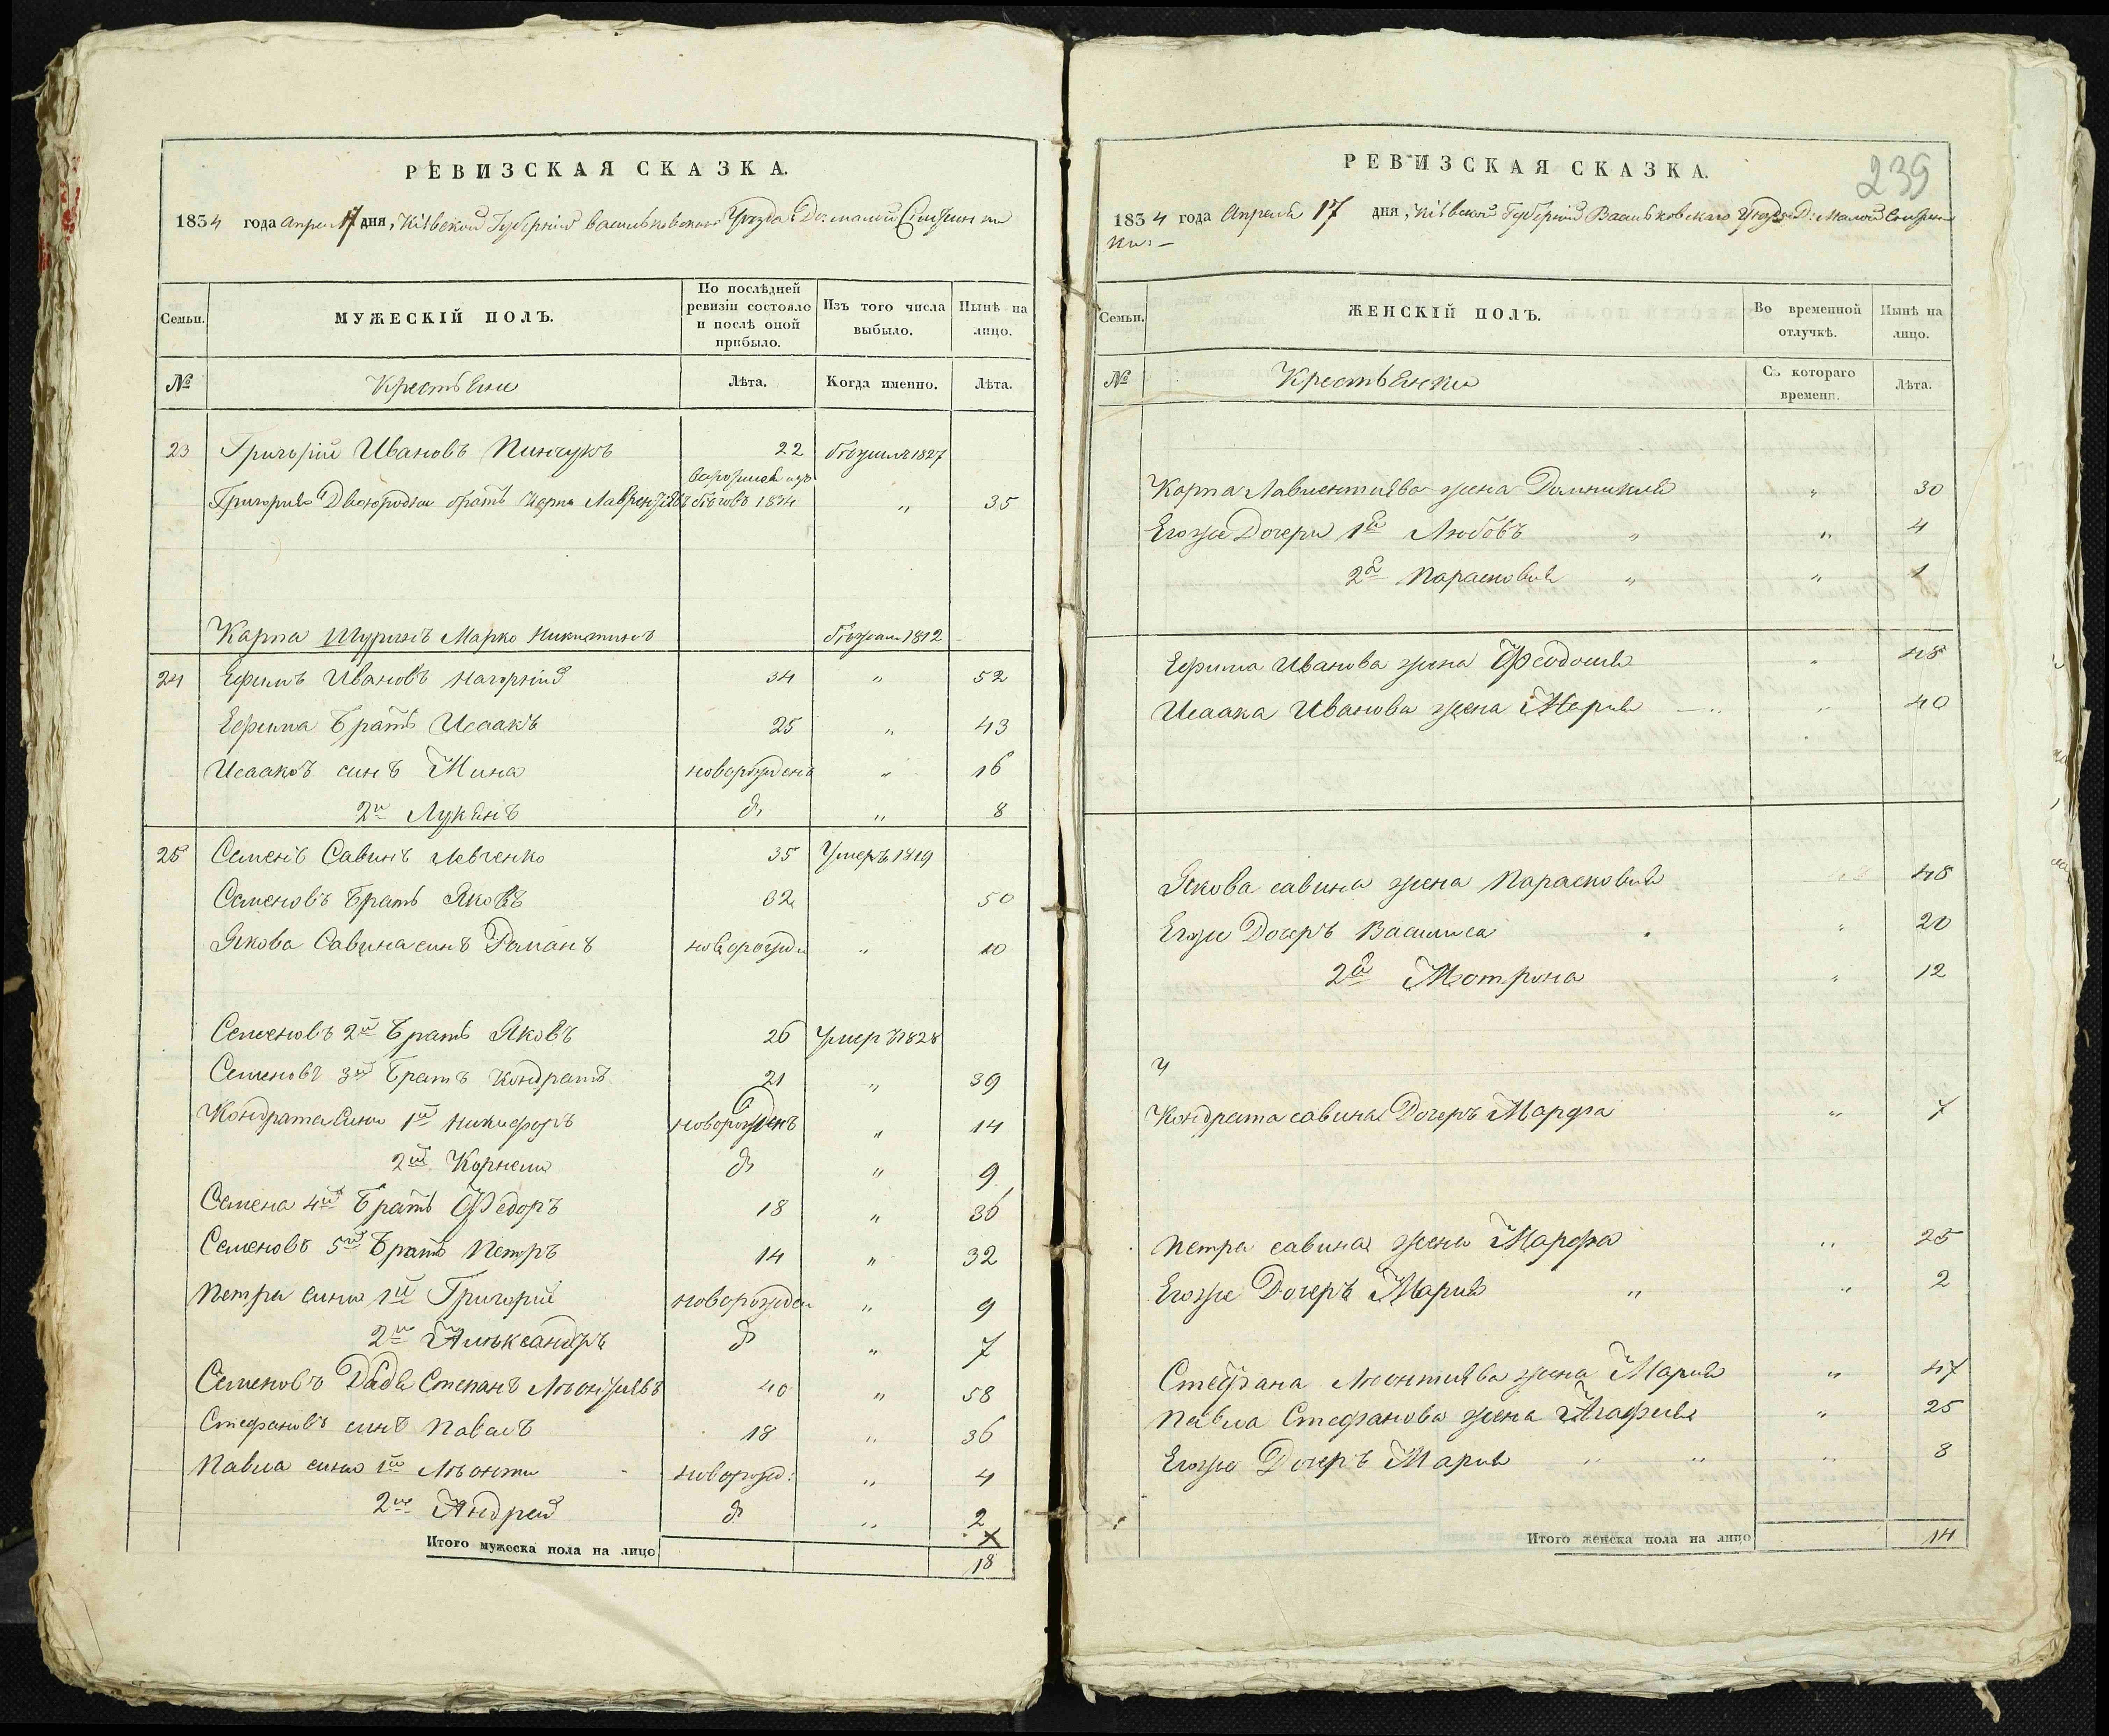 РЕВИЗСКАЯ СКАЗКА.
1834 года Апреля 17 дня, Кіевской Губерніи Васильковскаго Уезда Д:
Семьи.
МУЖЕСКІЙ ПОЛЪ.
По послѣдней ревизіи состояло и послѣ оной прибыло.
Изъ того числа выбыло.
Нынѣ на лицо.
№
Крестьяне
Лѣта.
Когда именно.
Лѣта.
23 Григорій Ивановъ Пинчукъ 22 бѣжалъ 1827
из бѣговъ 1834
Григорія Двоюродни братъ Карпъ " 35
Карпа Шуринъ Марко Никитинъ бѣжалъ 1812
24 Ефимъ Ивановъ Нагорній 34 " 52
Ефима Братъ Исаакъ 25 " 43
Исааковъ синъ Мина новорожденъ " 16
2й Лукянъ д. " 8
25 Семенъ Савинъ Левченко 35 Умеръ 1819
Семеновъ Братъ Яковъ 32 50
Якова Савина синъ Романъ новорожд " 10
Семеновъ 2й Братъ Яковъ 26 Умеръ 1828
Семеновъ 3й Братъ Кондратъ 21 " 39
Кондрата Сини 1й Никифоръ новорожденъ " 14
2й Корнели д " 9
Семена 4й Братъ Федоръ 18 " 36
Семеновъ 5й Братъ Петръ 14 " 32
Петра сини 1й Григорій новорожден " 9
2й Альександръ д " 7
Семеновъ Дядя Степанъ 40 " 58
Стефановъ синъ Павелъ 18 " 36
Павла сини 1й Львонти новорожд: " 4
2й Андрей д " 2
Итого мужеска пола на лицо
18
239
РЕВИЗСКАЯ СКАЗКА.
1834 года Апреля 17 дня, Кіевской Губерніи Васильковскаго Уезда Д: Малой
ки:–
Семьи.
ЖЕНСКІЙ ПОЛЪ.
Во временной отлучкѣ.
Нынѣ на лицо.
№
Крестьянки
Съ котораго времени.
Лѣта.
Карпа Лавиентиева жена Домникия " 30
Егоже Дочери 1я Любовъ " " 4
2я Парасковия " " 1
Ефима Иванова жена Феодосия " 48
Исаака Иванова жена Мария " " 40
Якова савина жена Парасковия 48
Егоже Дочеръ Василиса " 20
2я Мотрона " 12
Кондрата савина Дочеръ Марфа " 7
Петра савина жена Марфа " 25
Егоже Дочеръ Мария " " 2
Стефана Львонтиева жена Мария " 47
Павла Стефанова жена Агафия " 25
Егоже Дочеръ Мария " " " 8
Итого женска пола на лицо
14